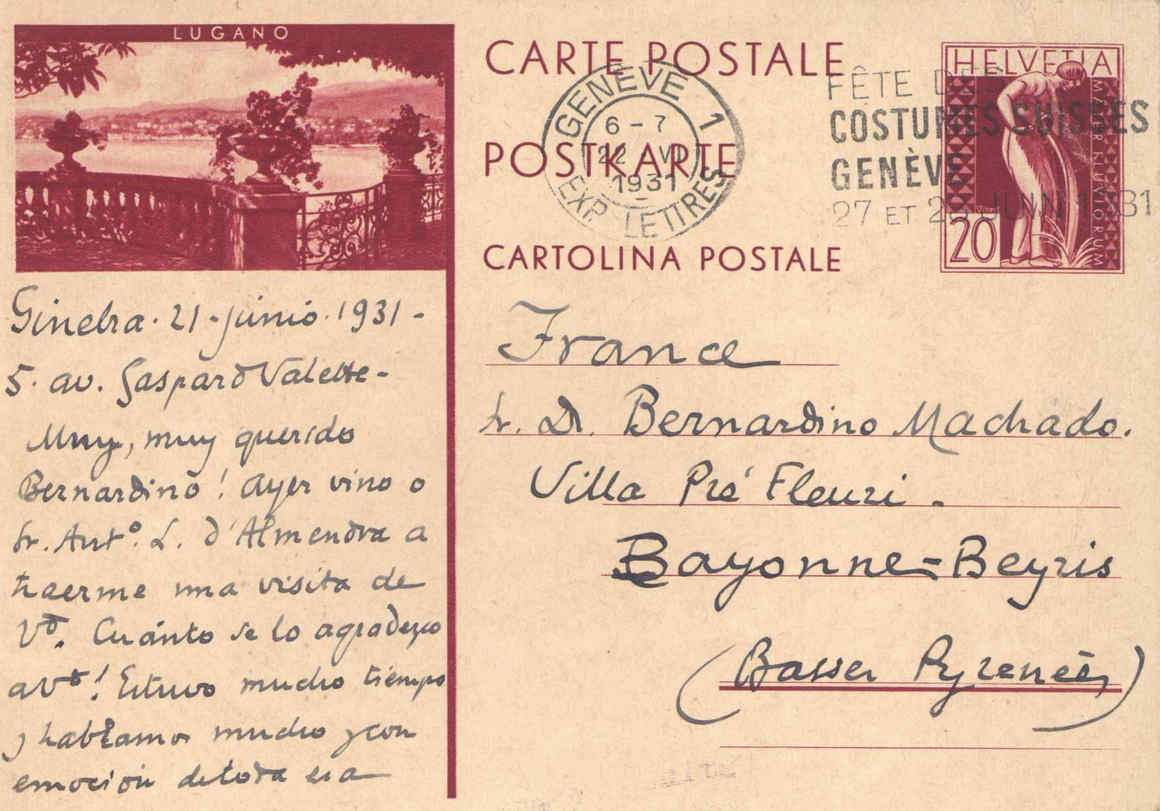 LUGANO
CARTE POSTALE
POSTKARTE
CARTOLINA POSTALE
GENÈVE 1
6-7
22 VI
1931
EXP. LETTRES
FÊTE DES
COSTUMES SUISSES
GENÈVE
27 ET 28 JUIN 1931
HELVETIA
20
Ginebra. 21-junio. 1931-
5. av. Gaspard Valette-
Muy, muy querido
Bernardino! Ayer vino o
Sr. Antº. L. d'Almendra a
traerme una visita de
Vd. Cuánto se lo agradezco
a Vd! Estuvo mucho tiempo
y hablamos mucho y con
emoción de toda esa
France
Sr. D. Bernardino Machado.
Villa Pré Fleuri.
Bayonne-Beyris
(Basses Pyrenées)